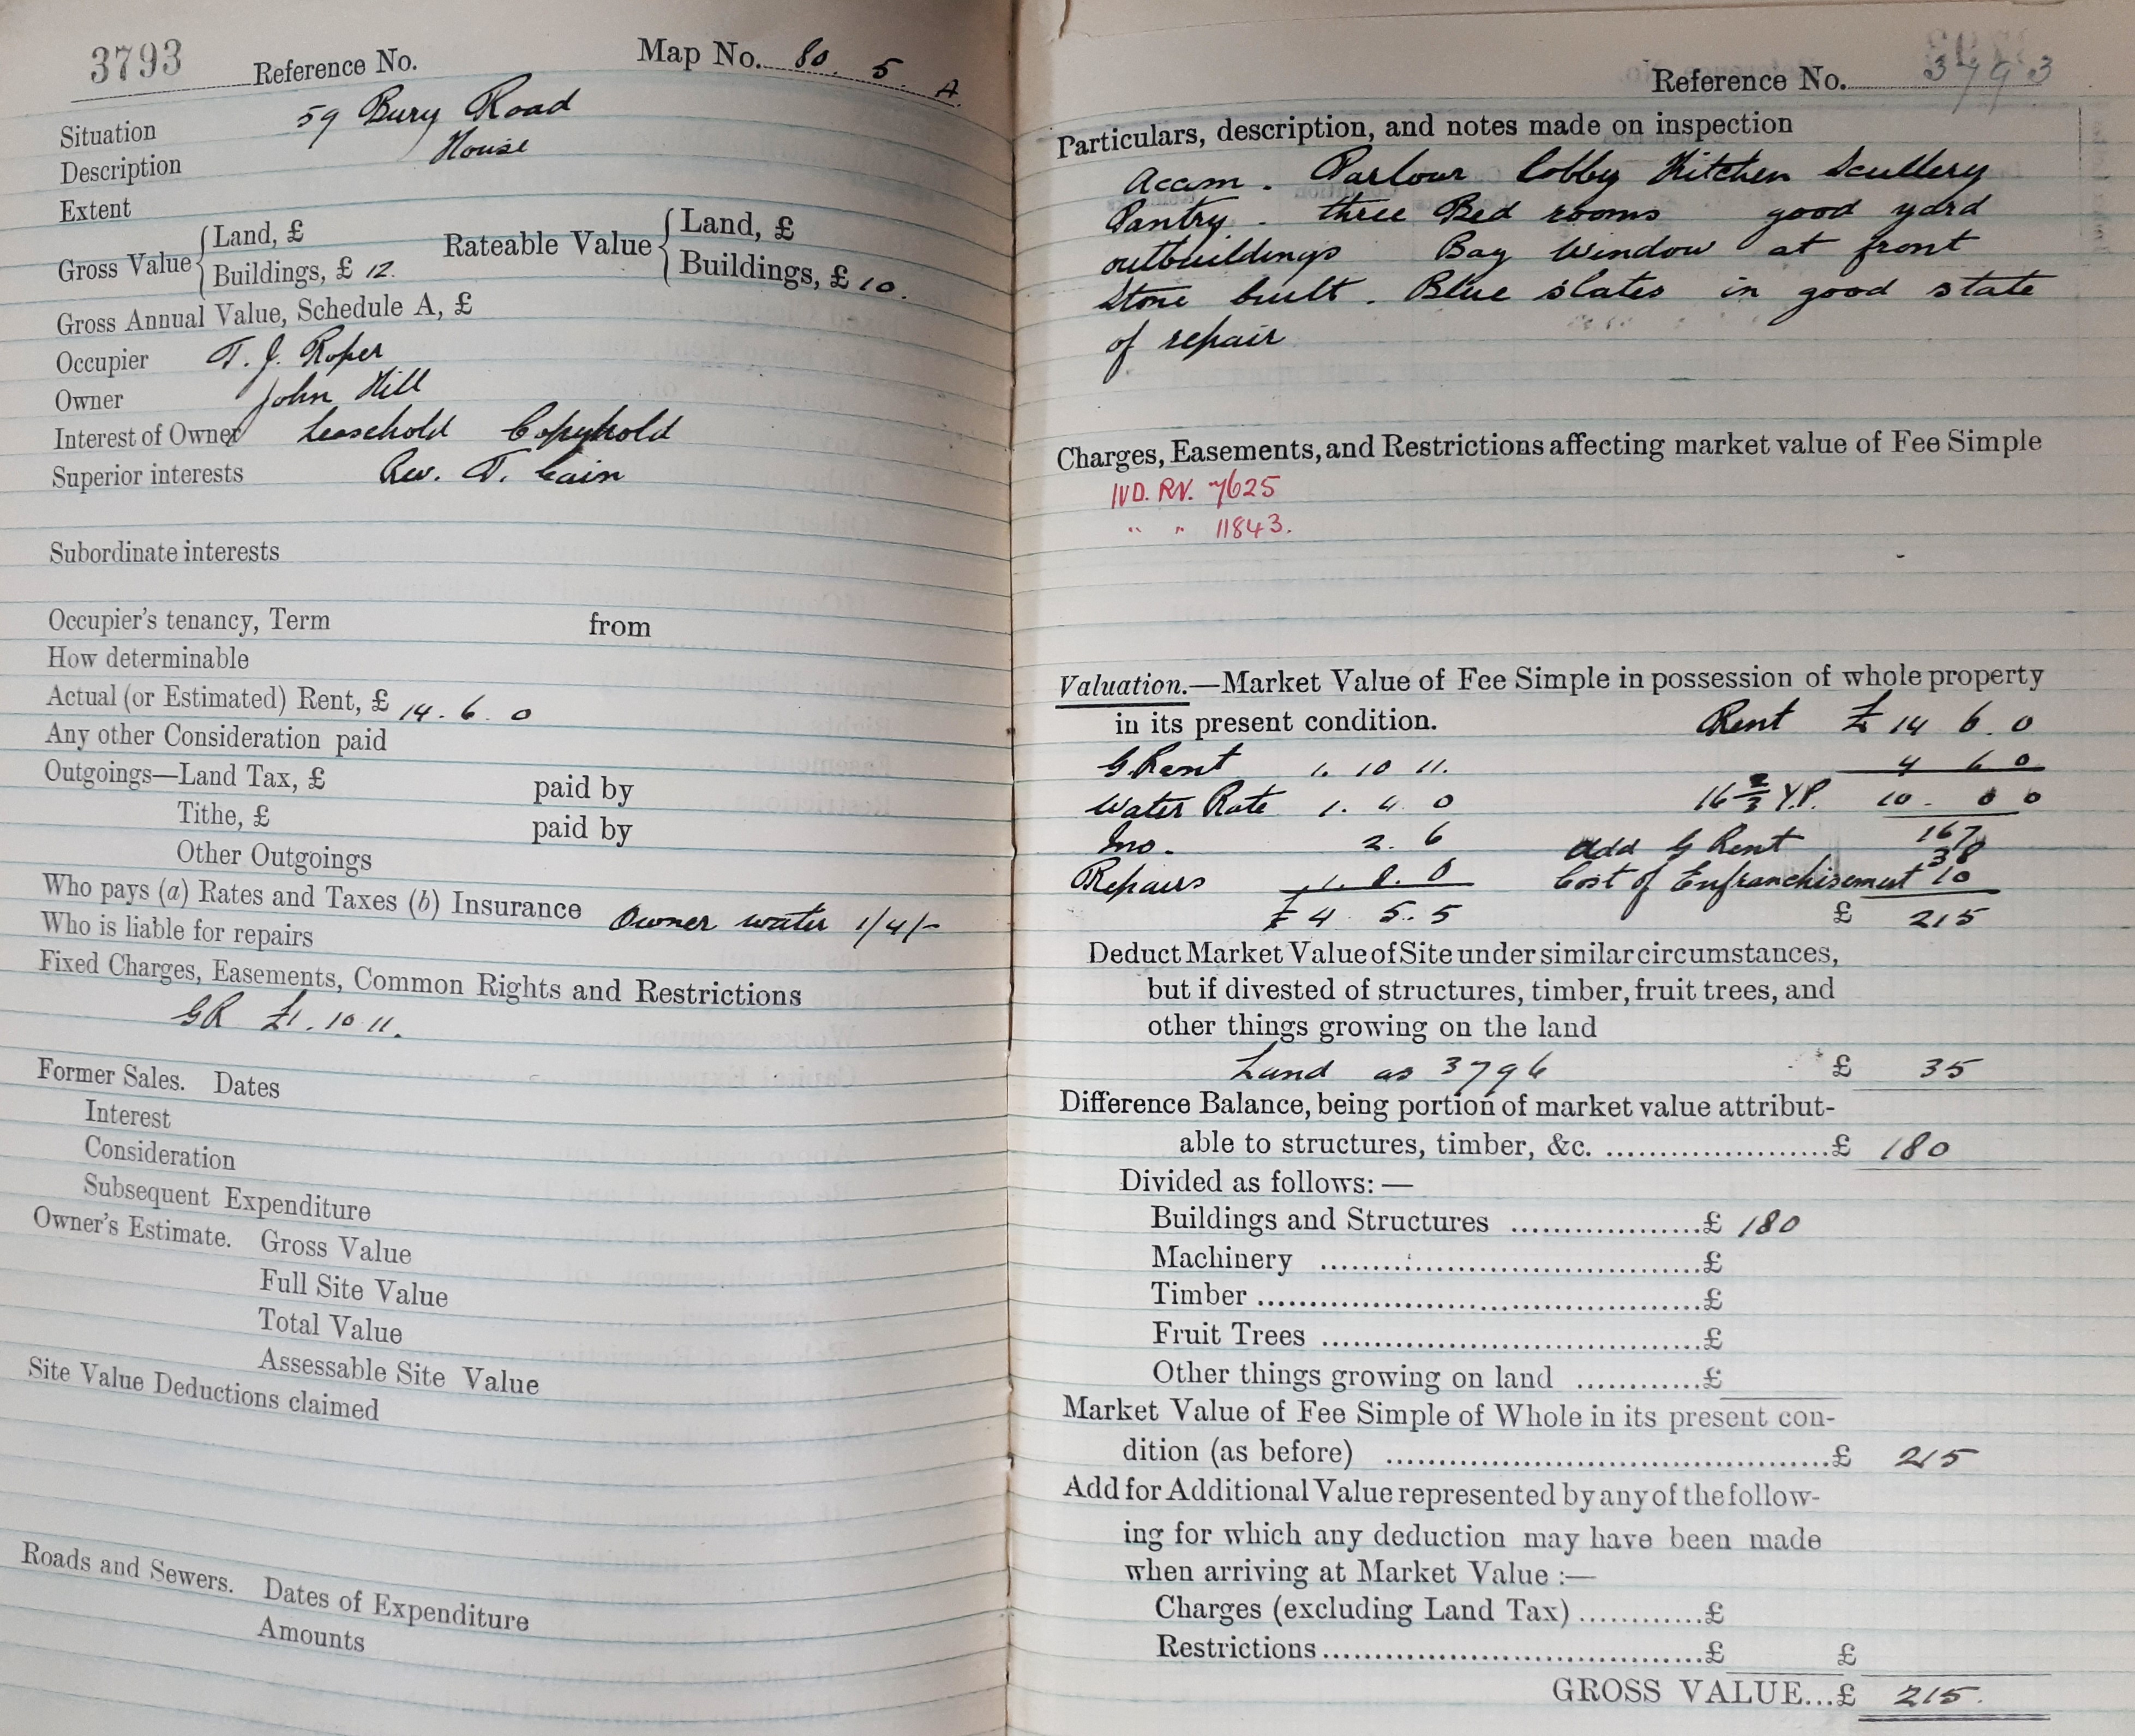 3793 Reference No. Map No. 80. 5. A.
Situation 59 Bury Road
Description House
Extent
Gross Value { Land, £ Rateable Value { Land, £
Buildings, £ 12. Buildings, £ 10.
Gross Annual Value, Schedule A, £
Occupier T. J. Roper
Owner John Hill
Interest of Owner Leasehold Copyhold
Superior interests Rev. T. Cain
Subordinate interests
Occupier's tenancy, Term from
How determinable
Actual (or Estimated) Rent, £ 14. 6. 0
Any other Consideration paid
Outgoings—Land Tax, £ paid by
Tithe, £ paid by
Other Outgoings
Who pays (a) Rates and Taxes (b) Insurance Owner water 1/4/-
Who is liable for repairs
Fixed Charges, Easements, Common Rights and Restrictions
GR £1. 10 11.
Former Sales. Dates
Interest
Consideration
Subsequent Expenditure
Owner's Estimate. Gross Value
Full Site Value
Total Value
Assessable Site Value
Site Value Deductions claimed
Roads and Sewers. Dates of Expenditure
Amounts
Reference No. 3793
Particulars, description, and notes made on inspection
Accom. Parlour Lobby Kitchen Scullery
Pantry. three Bed rooms good yard
outbuildings Bay Window at front
Stone built. Blue slates in good state
of repair
Charges, Easements, and Restrictions affecting market value of Fee Simple
IVD. RV. 7625
" " 11843.
Valuation.—Market Value of Fee Simple in possession of whole property
in its present condition. Rent £ 14 6. 0
G. Rent 1. 10 11. 4 6 0
Water Rate 1. 4 0 16 2/3 Y.P. 10. 0 0
Ins. 2. 6 167
Add G Rent 38
Repairs 1. 8. 0 Cost of Enfranchisement 10
£ 4 5. 5 £ 215
Deduct Market Value of Site under similar circumstances,
but if divested of structures, timber, fruit trees, and
other things growing on the land
Land as 3796 £ 35
Difference Balance, being portion of market value attribut-
able to structures, timber, &c. .....................£ 180
Divided as follows:—
Buildings and Structures ..................£ 180
Machinery ....................................£
Timber ..........................................£
Fruit Trees ....................................£
Other things growing on land ............£
Market Value of Fee Simple of Whole in its present con-
dition (as before) ..........................................£ 215
Add for Additional Value represented by any of the follow-
ing for which any deduction may have been made
when arriving at Market Value :—
Charges (excluding Land Tax) ............£
Restrictions.......................................£ £
GROSS VALUE...£ 215.